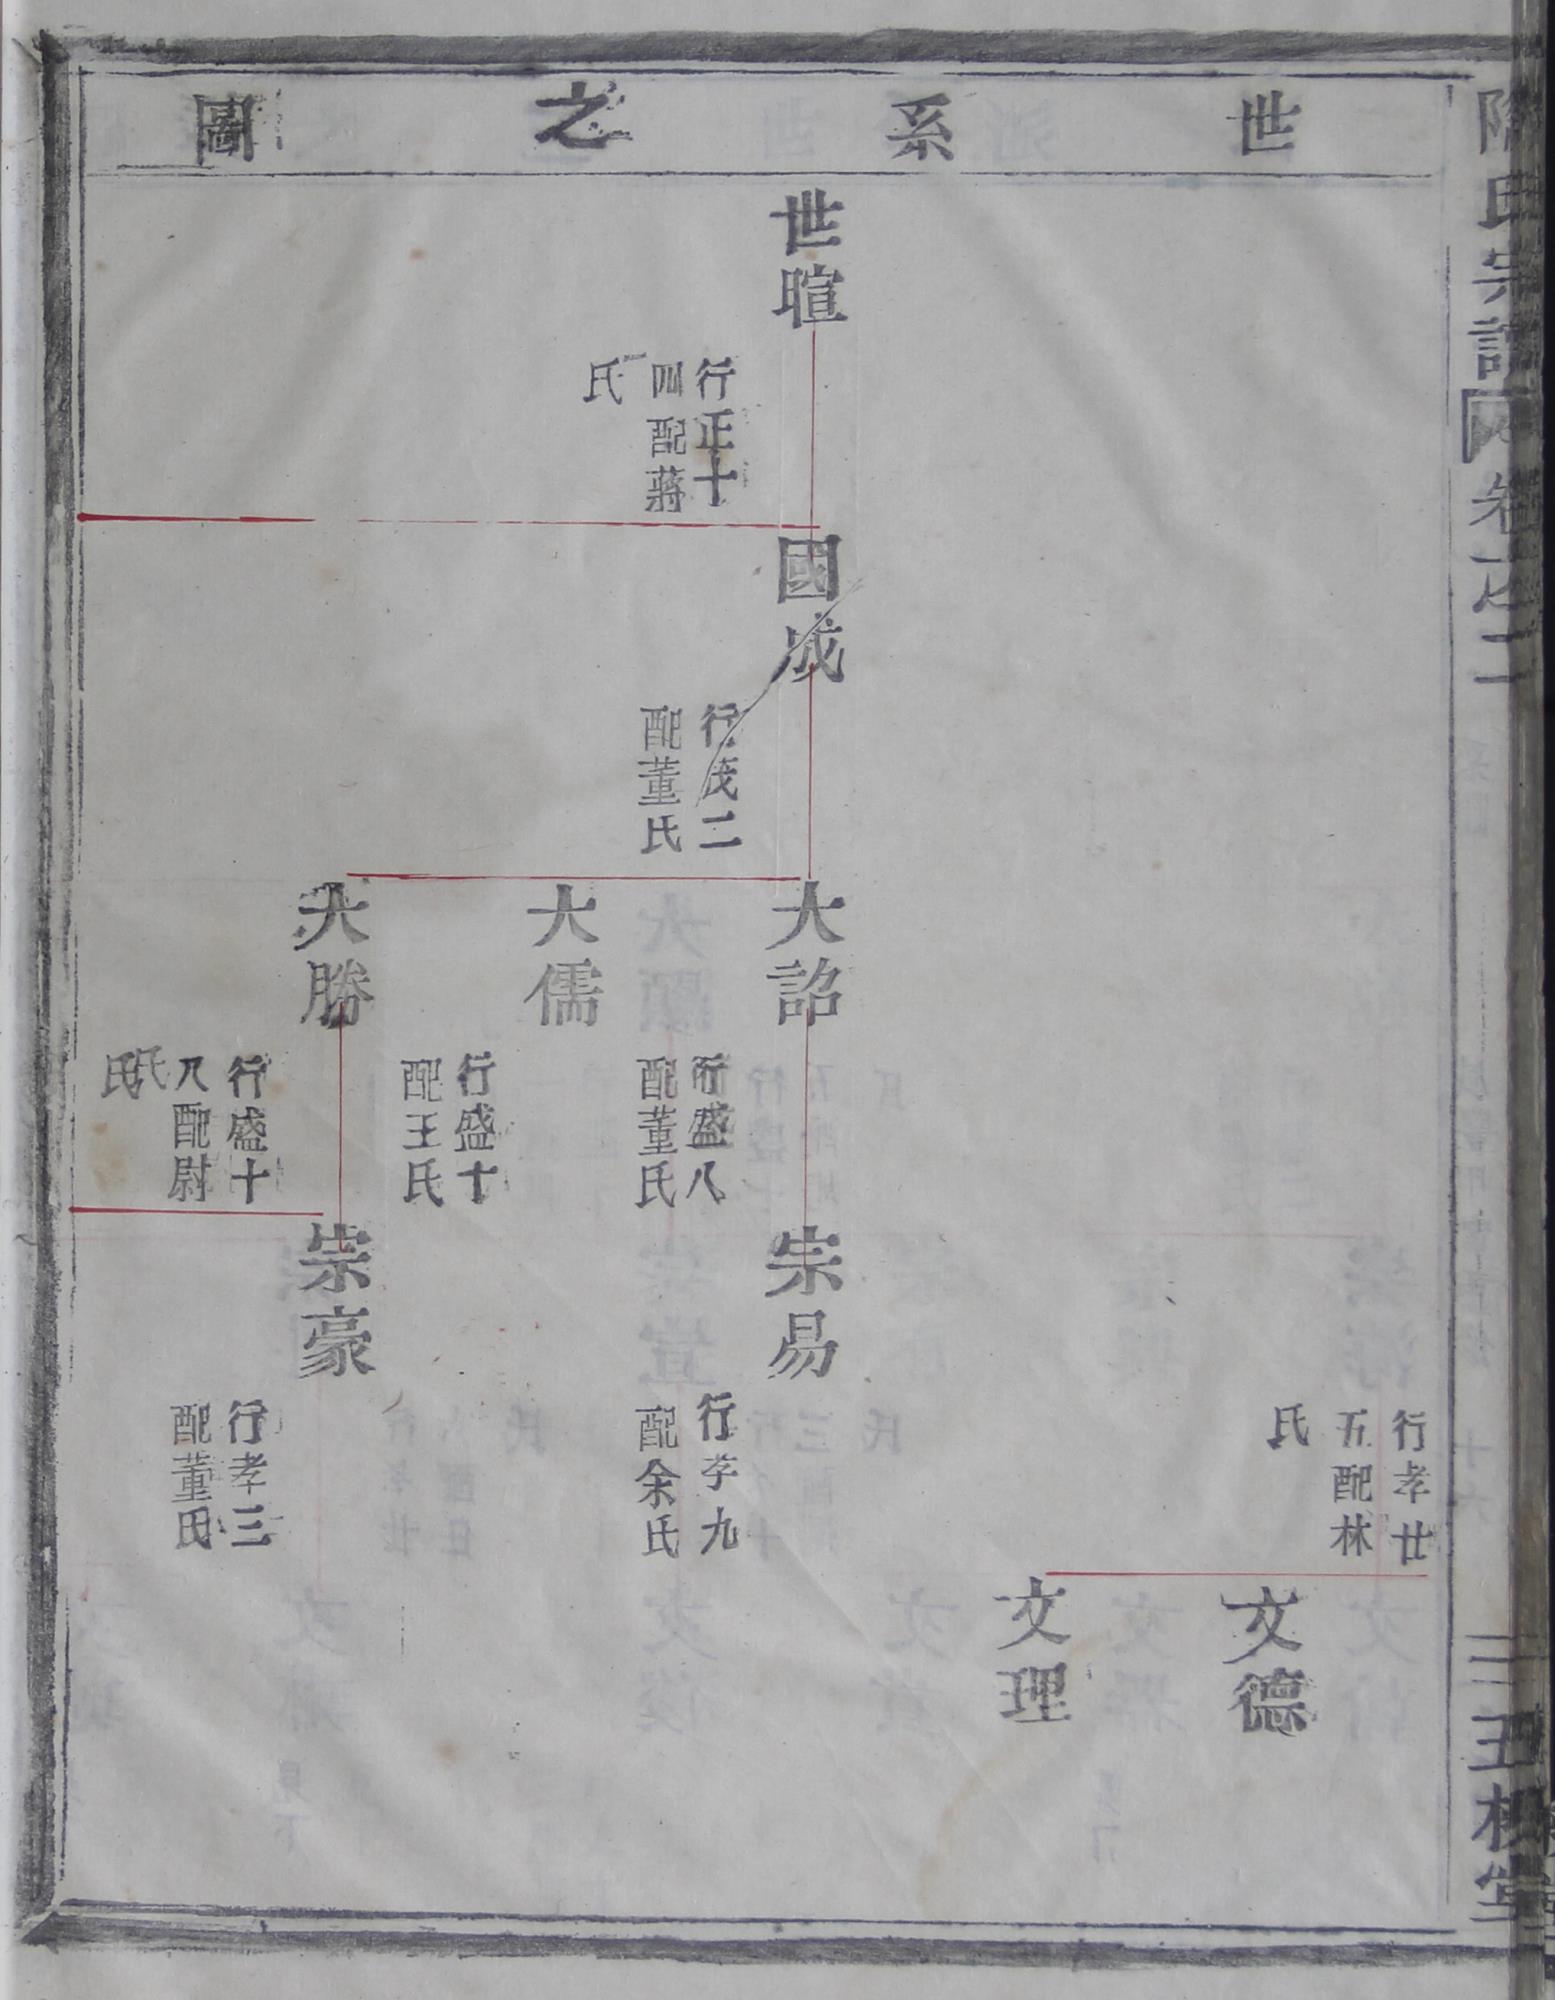 世系之圖
氏宗譜
卷之二
三王槐堂
世暄
行正十
四配蔣
氏
國成
行茂二
配董氏
大詔
大儒
大勝
行盛八
配董氏
行盛十
配王氏
行盛十
八配尉
氏
宗易
崇豪
行孝廿
五配林
氏
行孝九
配余氏
行孝三
配董氏
文德
文理